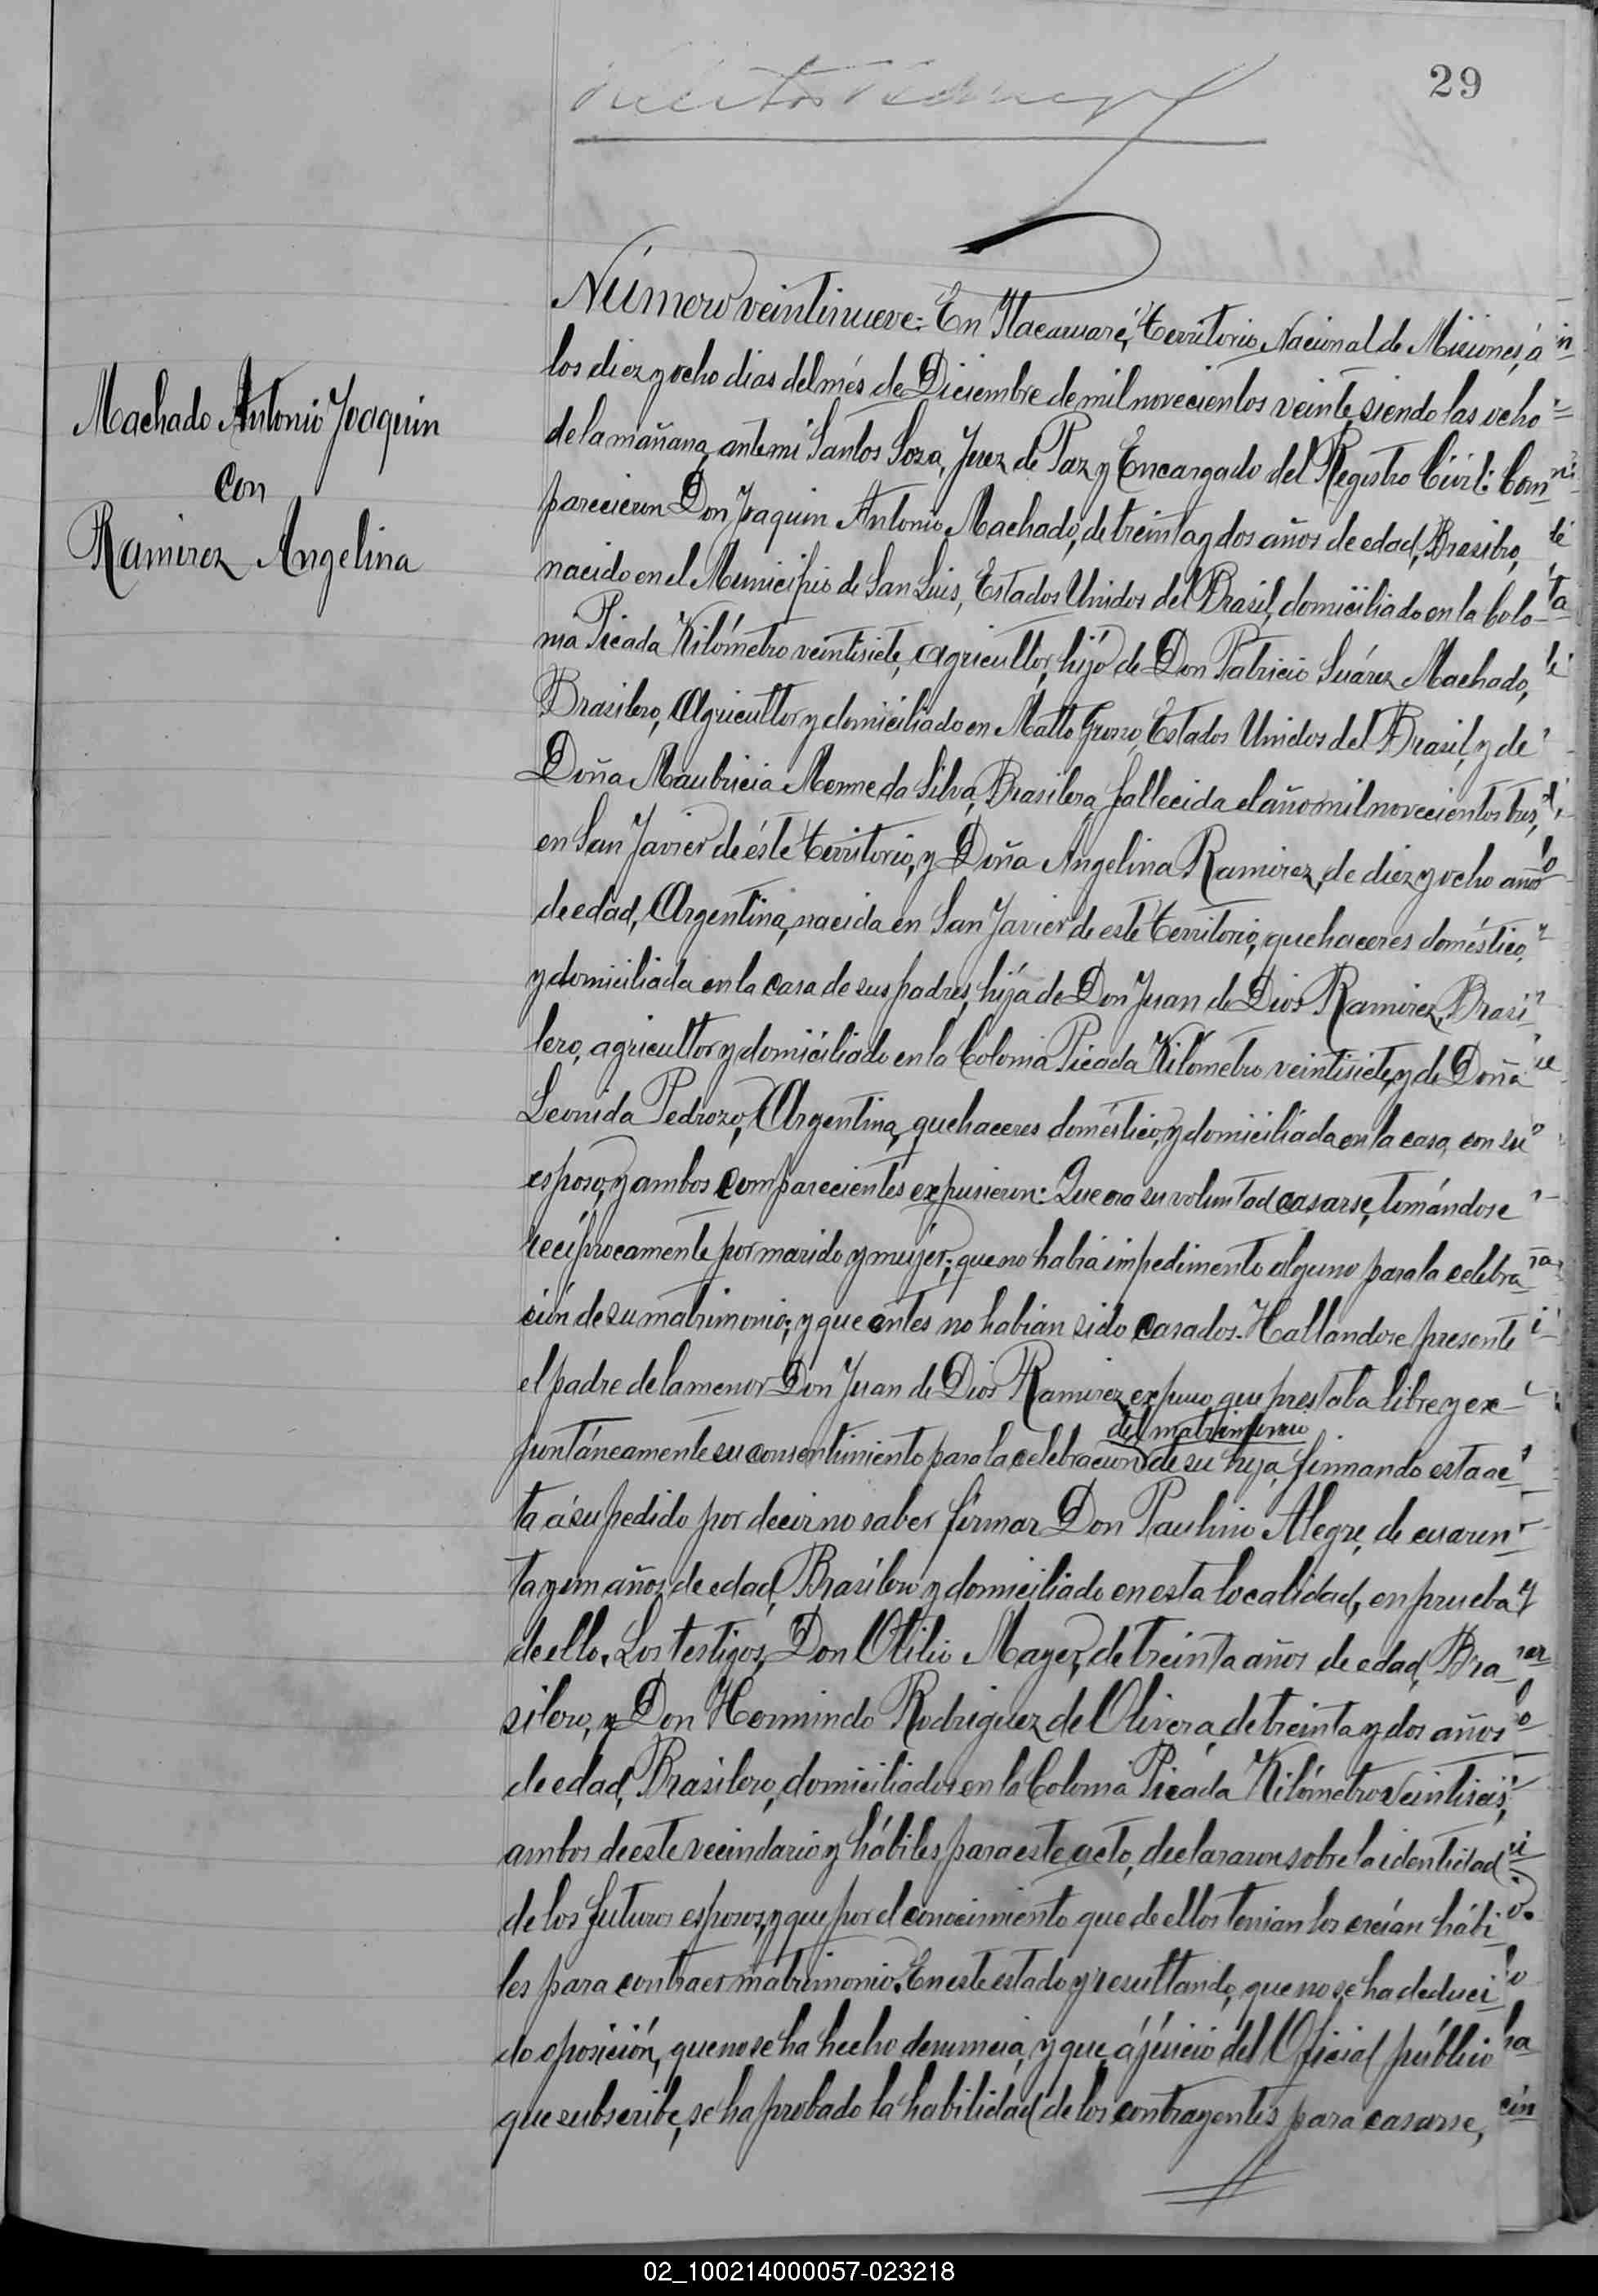 29
Número veintinueve: En Itacaruaré, Territorio Nacional de Misiones, á
los diez y ocho dias del més de Diciembre de mil novecientos veinte, siendo las ocho
Machado Antonio Joaquin
con
Ramirez Angelina
de la mañana, ante mi Santos Soza, Juez de Paz y Encargado del Registro Civil: Com
parecieron Don Joaquin Antonio Machado, de treinta y dos años de edad, Brasilro,
nacido en el Municipio de San Luis, Estados Unidos del Brasil, domiciliado en la Colo-
nia Picada Kilómetro veintisiete, agricultor, hijo de Don Patricio Suárez Machado,
Brasilero, Agricultor y domiciliado en Matto Grosso, Estados Unidos del Brasil, y de
Doña Maubricia Menne da Silva, Brasilera, fallecida el año mil novecientos tres,
en San Javier de éste Territorio, y Doña Angelina Ramirez, de diez y ocho año
de edad, Argentina, nacida en San Javier de este Territorio, quehaceres doméstico,
y domiciliada en la casa de sus padres, hija de Don Juan de Dios Ramirez, Brasi
lero, agricultor y domiciliado en la Colonia Picada Kilómetro veintisiete, y de Doña
Leonida Pedrozo, Argentina, quehaceres doméstico, y domiciliada en la casa, con su
esposo, y ambos comparecientes expusieron: Que era su voluntad casarse, tomándose
recíprocamente por marido y mujer; que no habia impedimento alguno para la celebra
ción de su matrimonio; y que antes no habian sido casados. Hallandose presente
el padre de la menor Don Juan de Dios Ramirez, expuso que prestaba libre y ex-
del matrimonio
puntáneamente su consentimiento para la celebracion de su hija, firmando esta ac
ta á su pedido por decir no saber firmar Don Paulino Alegre, de cuaren
ta y un años de edad, Brasilero y domiciliado en esta localidad, en prueba
de ello. Los testigos, Don Otilio Mayer, de treinta años de edad, Bra
silero, y Don Hermindo Rodriguez de Olivera, de treinta y dos años
de edad, Brasilero, domiciliados en la Colonia Picada Kilómetro Veintiseis,
ambos de este vecindario y hábiles para este acto, declararon sobre la identidad
de los futuros esposos, y que por el conocimiento que de ellos tenian los creían hábi
les para contraer matrimonio. En este estado y resultando, que no se ha deduci
do oposición, que no se ha hecho denuncia, y que á juicio del Oficial público
que subscribe, se ha probado la habilidad de los contrayentes para casarse,
02_100214000057-023218